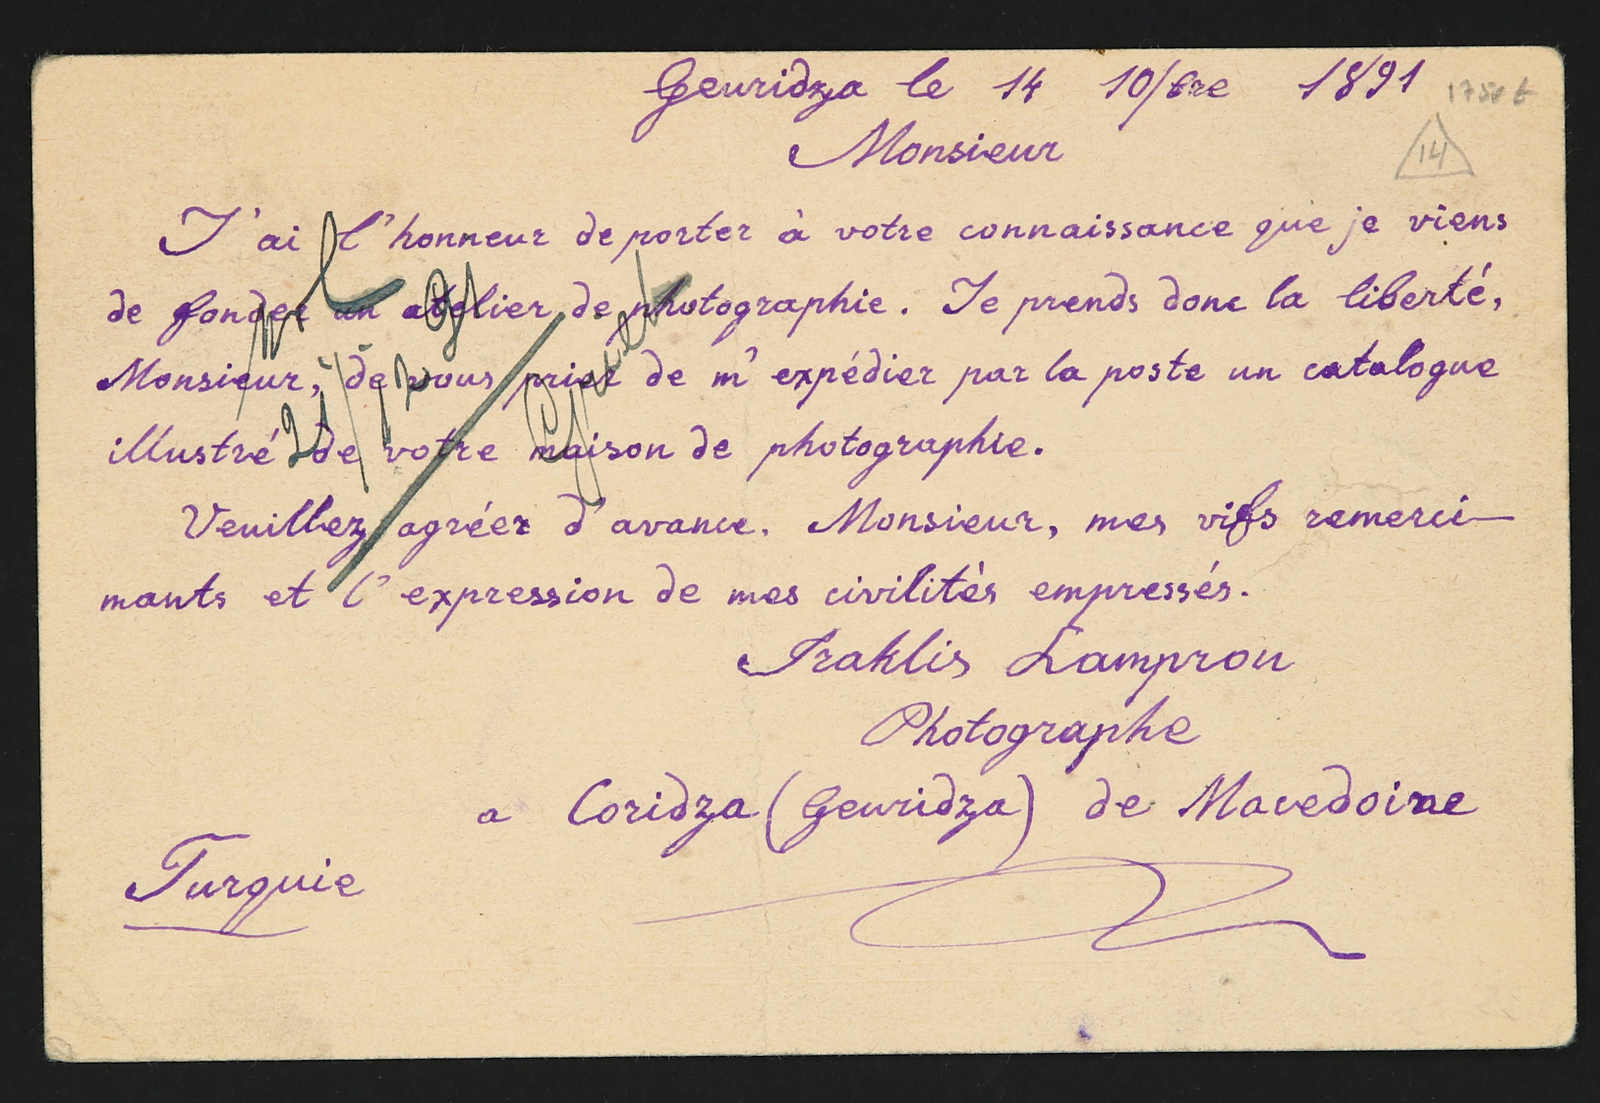 Geuridza le 14 10/bre 1891
14
Monsieur
J'ai l'honneur de porter à votre connaissance que je viens
de fonder un atelier de photographie. Je prends donc la liberté,
Monsieur, de vous prier de m'expédier par la poste un catalogue
illustré de votre maison de photographie.
Veuillez agréer d'avance, Monsieur, mes vifs remerci-
mants et l'expression de mes civilités empressés.
Iraklis Lamprou
Photographe
a Coridza (Geuridza) de Macedoine
Turquie